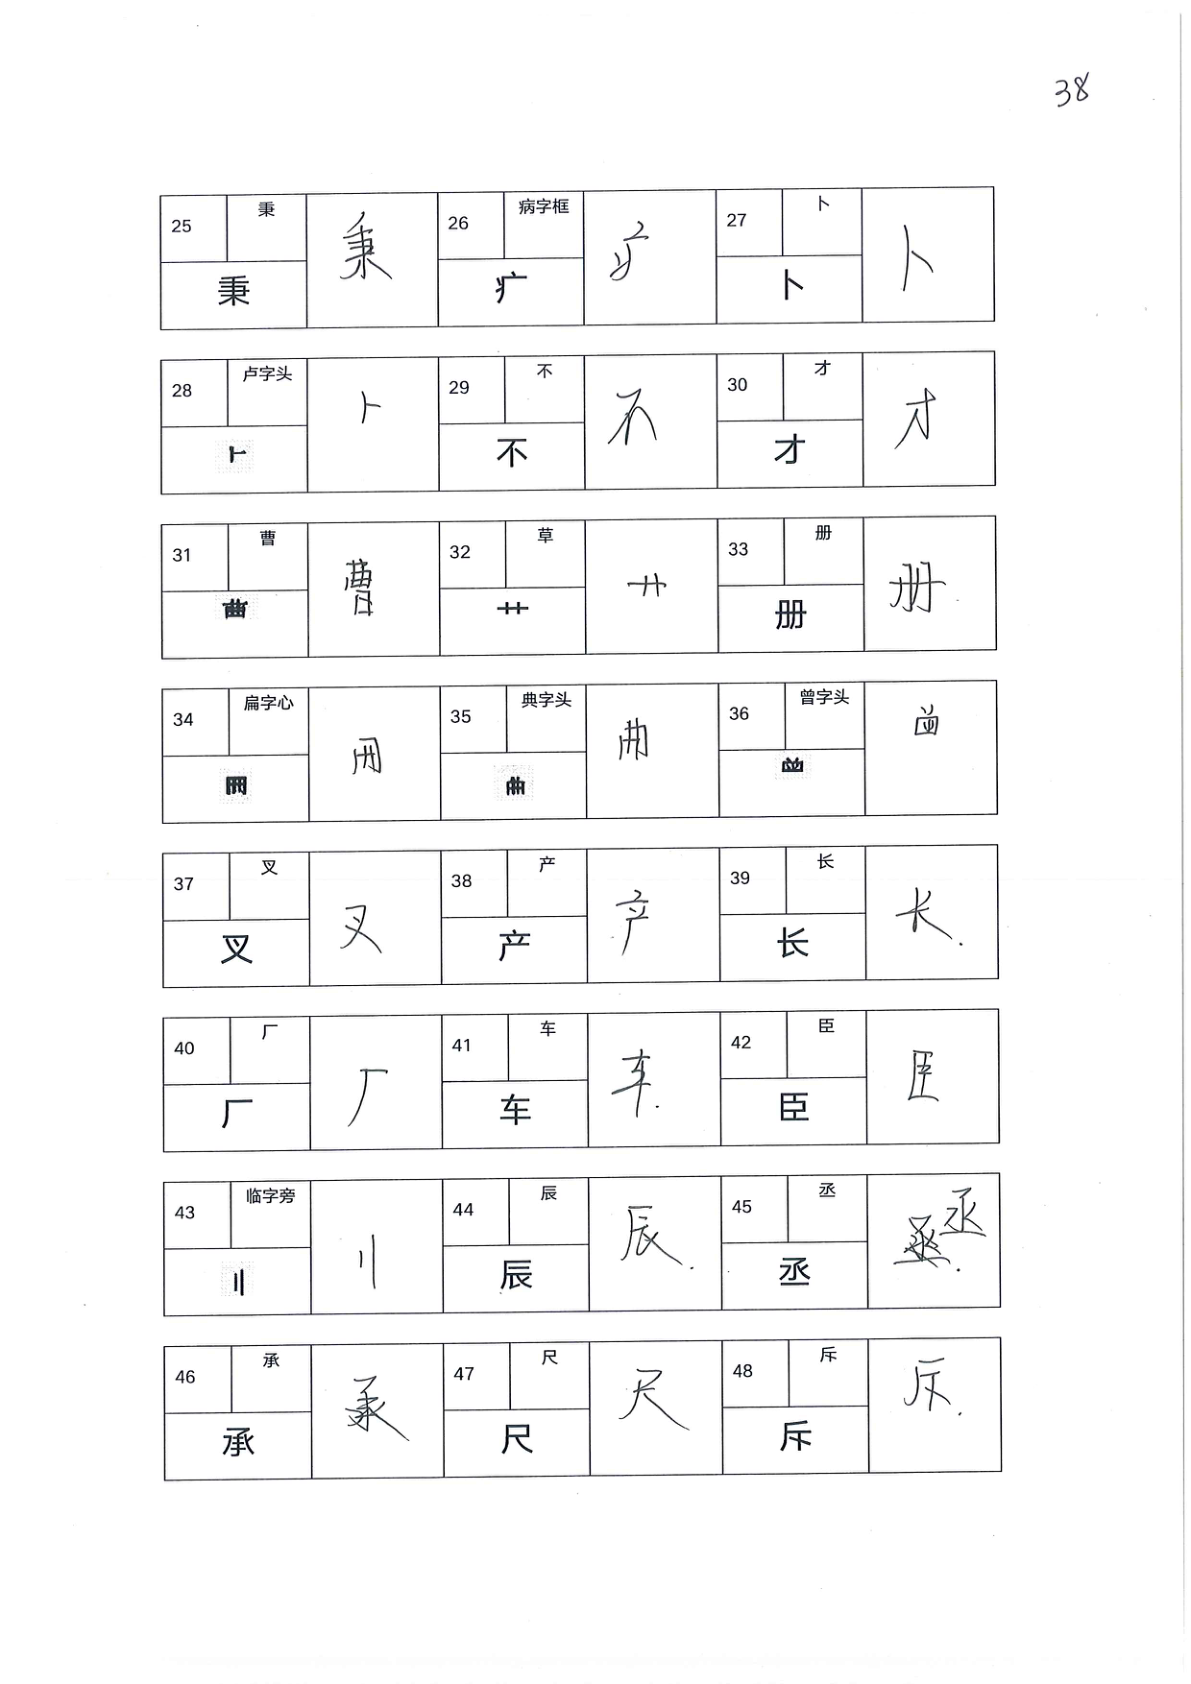 38
25 秉 秉 26 病字框 疒 27 卜 卜
秉 疒 卜
28 卢字头 ⺊ 29 不 不 30 才 才
⺊ 不 才
31 曹 曹 32 草 艹 33 册 册
艹 册
34 扁字心 35 典字头 36 曾字头
37 叉 叉 38 产 产 39 长 长
叉 产 长
40 厂 厂 41 车 车 42 臣 臣
厂 车 臣
43 临字旁 〢 44 辰 辰 45 丞 丞
〢 辰 丞
46 承 承 47 尺 尺 48 斥 斥
承 尺 斥